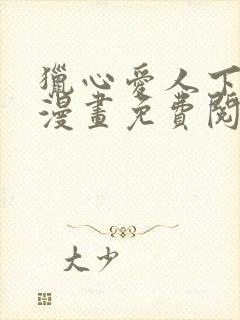 獵心愛人下
漫畫免費閱
大少